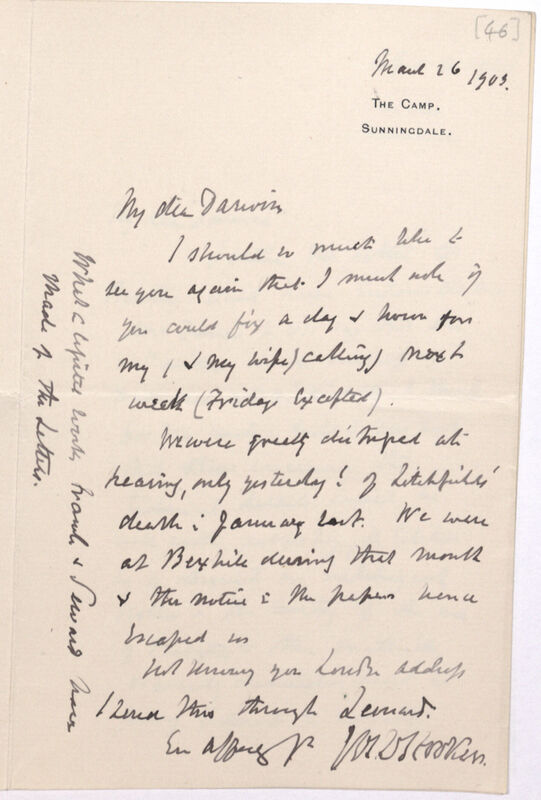 [46]
March 26 1903.
THE CAMP,
SUNNINGDALE.
My dear Darwin
I should so much like to
see you again that I must ask if
you could fix a day & hour for
my (& my wife) calling, next
week (Friday Excepted).
We were greatly distressed at
hearing, only yesterday! of Litchfield's
death in January last. We were
at Bexhill during that month
& the notice in the papers hence
Escaped us
Not knowing your London address
I send this through Leonard.
Ever affecy yr Jos. D. Hooker.
What a capital work Frank & Seward have
made of the Letters.